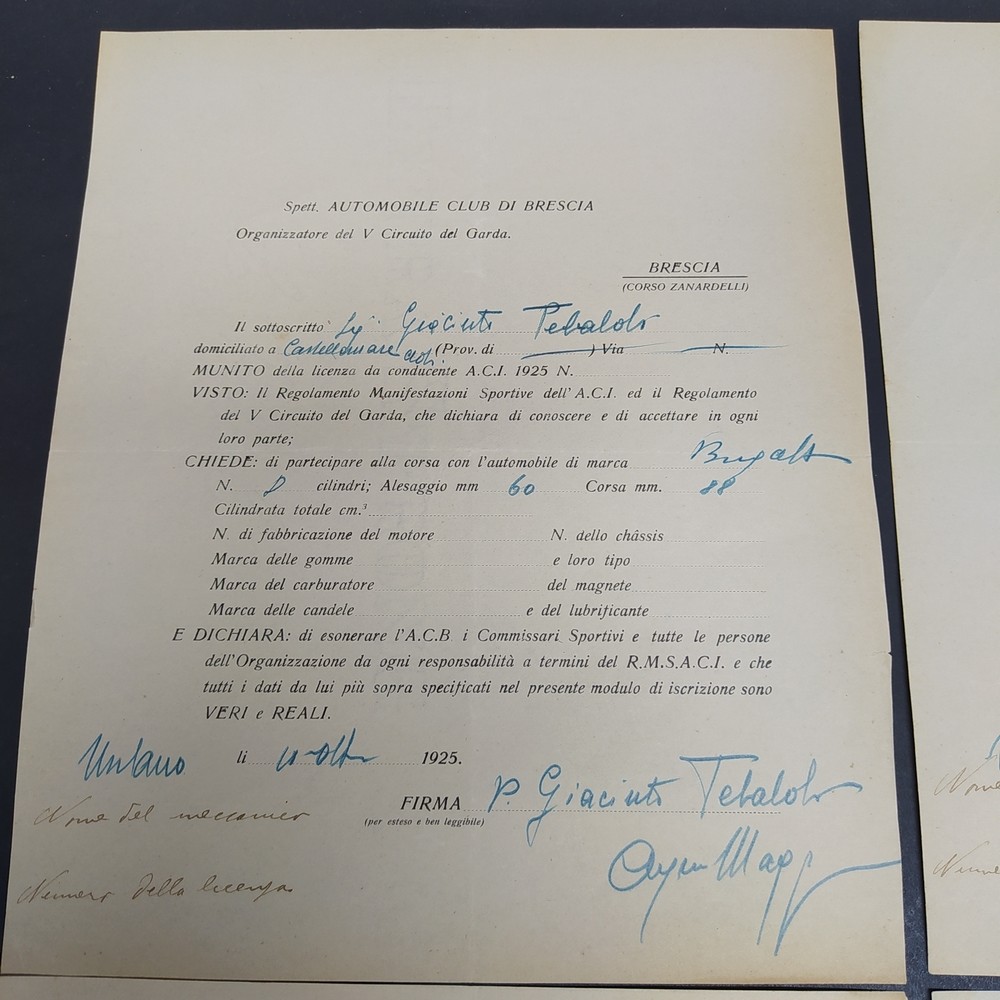 Spett. AUTOMOBILE CLUB DI BRESCIA
Organizzatore del V Circuito del Garda.
BRESCIA
(CORSO ZANARDELLI)
Il sottoscritto Sig. Giacinto Tebaldo
domiciliato a Castellamare (Prov. di ) Via N.
MUNITO della licenza da conducente A.C.I. 1925 N.
VISTO: Il Regolamento Manifestazioni Sportive dell'A.C.I. ed il Regolamento
del V Circuito del Garda, che dichiara di conoscere e di accettare in ogni
loro parte;
CHIEDE: di partecipare alla corsa con l'automobile di marca Bugatti
N. 8 cilindri; Alesaggio mm 60 Corsa mm. 88
Cilindrata totale cm.³
N. di fabbricazione del motore N. dello châssis
Marca delle gomme e loro tipo
Marca del carburatore del magnete
Marca delle candele e del lubrificante
E DICHIARA: di esonerare l'A.C.B. i Commissari Sportivi e tutte le persone
dell'Organizzazione da ogni responsabilità a termini del R.M.S.A.C.I. e che
tutti i dati da lui più sopra specificati nel presente modulo di iscrizione sono
VERI e REALI.
li 1925.
FIRMA p. Giacinto Tebaldo
(per esteso e ben leggibile)
Nome del meccanico
Numero della licenza